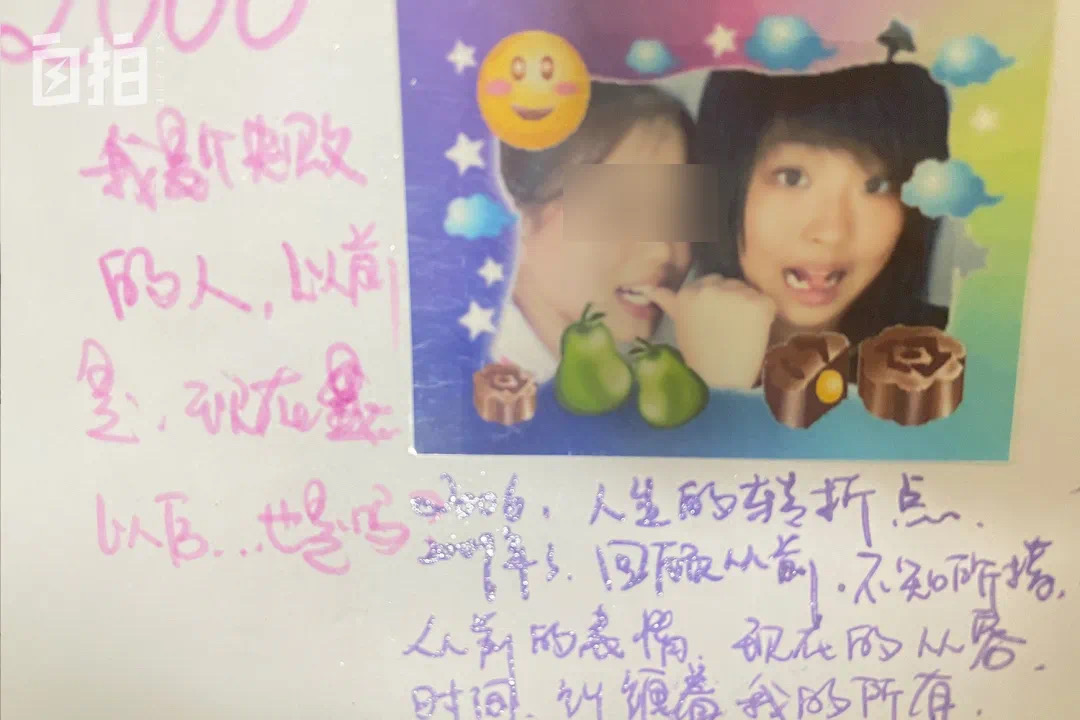 2000
自拍
我是个失败
的人,以前
是,现在是
以后...也是吗
2006,人生的转折点.
2007年了.回顾从前.不知所措.
从前的表情.现在的从容.
时间.纠缠着我的所有.